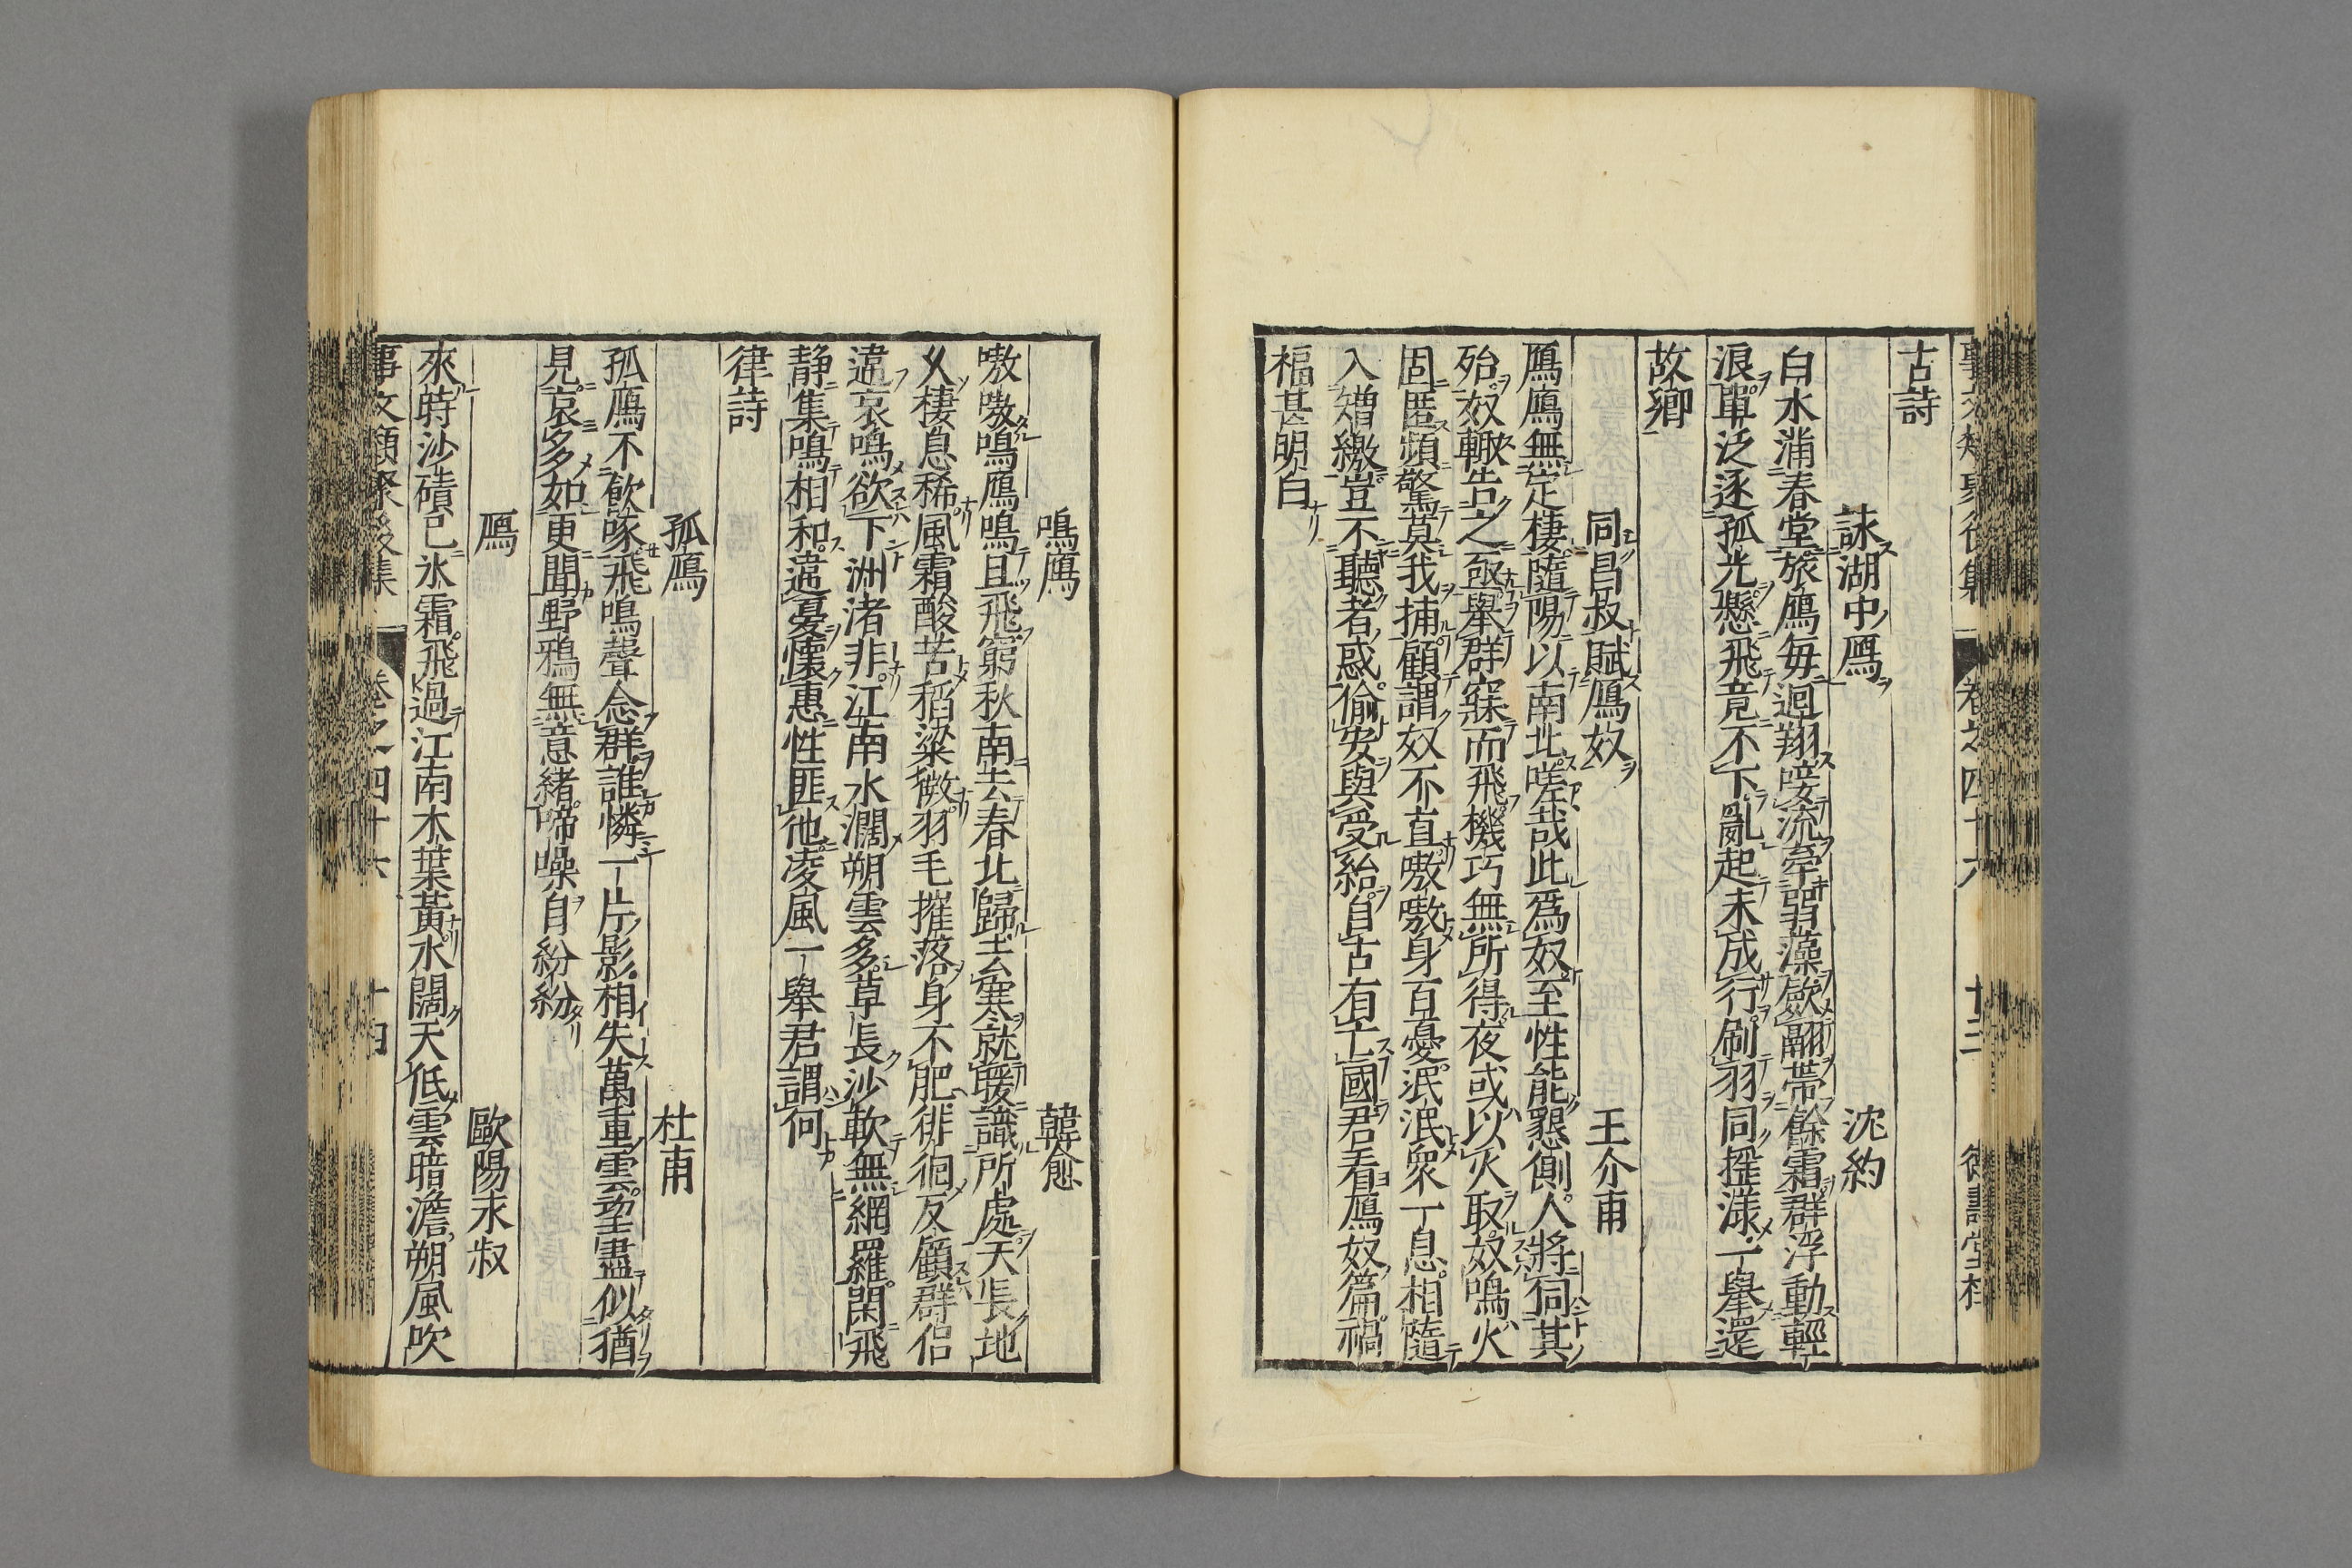 古詩
詠湖中鴈 沈約
白水滿春堂旅鴈每迴翔唼流牽弱藻歛翮帶餘霜群浮動輕
浪單泛逐孤光懸飛竟不下亂起未成行刷羽同搖漾一擧還
故鄉
同昌叔賦鴈奴 王介甫
鴈鴈無定棲隨陽以南北嗟哉此爲奴至性能懇惻人將伺其
殆奴輙告之亟擧群寐而飛機巧無所得夜或以火取奴鳴火
固匿頻驚莫我捕顧謂奴不直嗷嗷身百憂泯泯衆一息相隨
入矰繳豈不聽者惑偷安與受紿自古有亡國君看鴈奴篇禍
福甚明白
鳴鴈 韓愈
嗷嗷鳴鴈鳴且飛窮秋南去春北歸去寒就暖識所處天長地
乆棲息稀風霜酸苦稻粱微羽毛摧落身不肥徘徊反顧群侶
違哀鳴欲下洲渚非江南水濶朔雲多草長沙軟無網羅閑飛
静集鳴相和違憂懷惠性匪他凌風一擧君謂何
律詩
孤鴈 杜甫
孤鴈不飲啄飛鳴聲念群誰憐一片影相失萬重雲望盡似猶
見哀多如更聞野鴉無意緒啼噪自紛紛
鴈 歐陽永叔
來時沙磧已氷霜飛過江南木葉黃水闊天低雲暗澹朔風吹
事文類聚後集 卷之四十六 十四